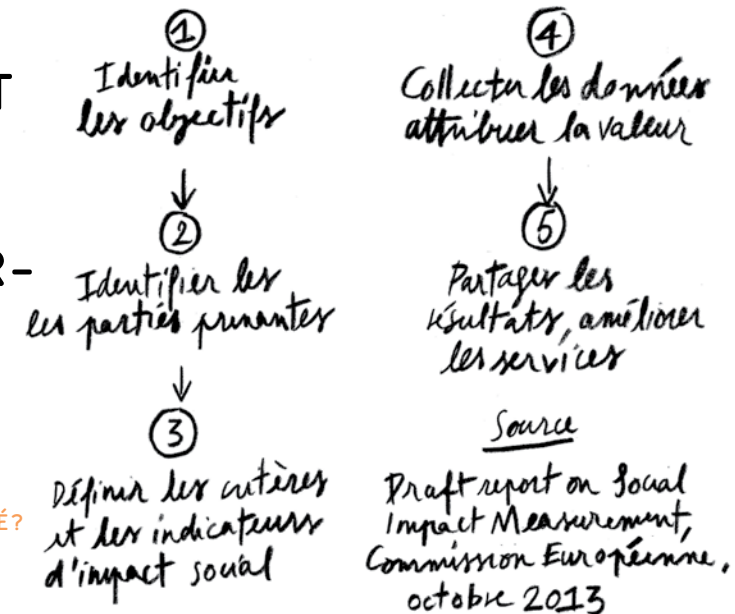 T
R-
É?
1
Identifier
les objectifs
2
Identifier les
les parties prenantes
3
Définir les critères
et les indicateurs
d'impact social
4
Collecter les données
attribuer la valeur
5
Partager les
résultats, améliorer
les services
Source
Draft report on Social
Impact Measurement,
Commission Européenne,
octobre 2013